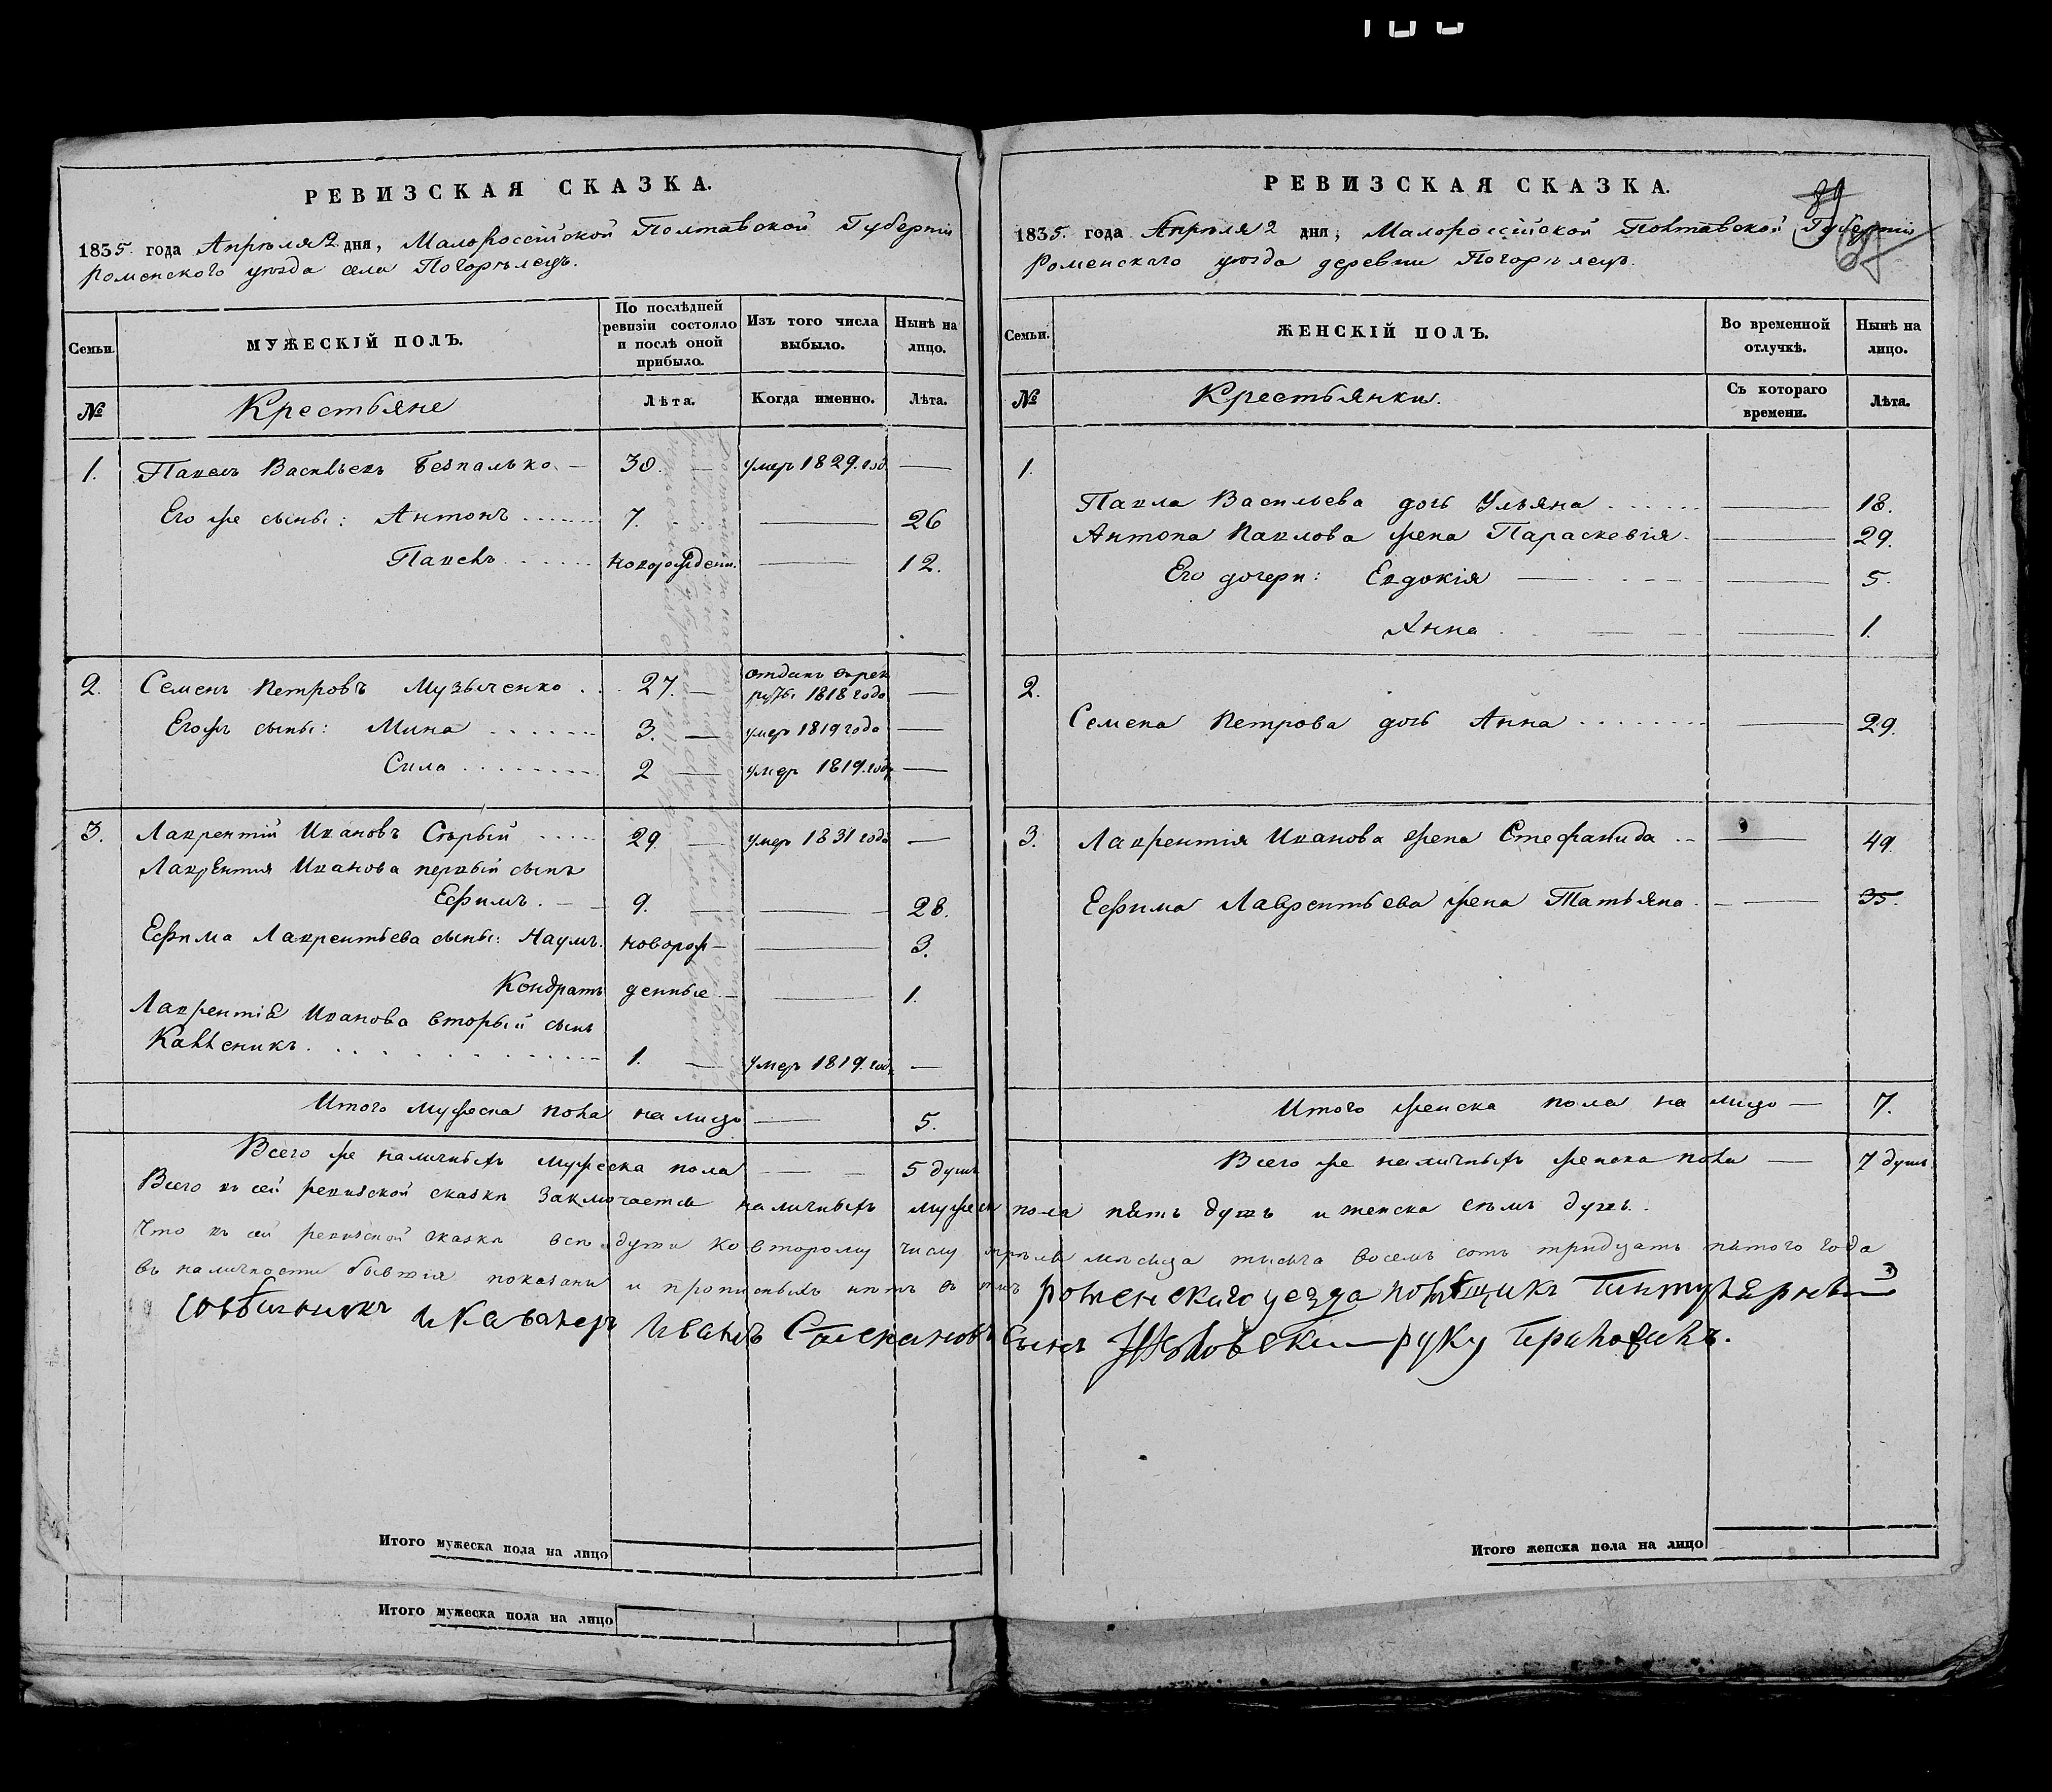 РЕВИЗСКАЯ СКАЗКА.
1835 года Апрѣля 2 дня, Малороссійской Полтавской Губерніи
Роменского уѣзда села Погорѣлецъ.
Семьи.
МУЖЕСКІЙ ПОЛЪ.
По послѣдней
ревизіи состояло
и послѣ оной
прибыло.
Изъ того числа
выбыло.
Нынѣ на
лицо.
№
Крестьяне
Лѣта.
Когда именно.
Лѣта.
1. Павелъ Васильевъ Безпалько 30. умеръ 1829. год —
Его же сыны: Антонъ 7. — 26
Павелъ новорожденн. — 12.
2. Семенъ Петровъ Музыченко 27. — отданъ въ рек
руты 1818 года —
Его жъ сыны: Мина 3. — умеръ 1819 года —
Сила 2 — умеръ 1819. года —
3. Лаврентій Ивановъ Сѣрый 29. — умеръ 1831 года —
Лаврентия Иванова первый сынъ
Ефимъ. — 9. — 28.
Ефима Лаврентьева сыны: Наумъ. новорож— — 3.
Кондратъ денные — — 1.
Лаврентія Иванова вторый сынъ
Калленикъ. 1. — умеръ 1819. год. —
Итого мужеска пола на лицо — 5.
Всего же наличныхъ мужеска пола — — 5 душъ
РЕВИЗСКАЯ СКАЗКА.
1835. года Апрѣля 2 дня, Малороссійской Полтавской Губерніи
Роменскаго уѣзда деревни Погорѣлецъ.
Семьи.
ЖЕНСКІЙ ПОЛЪ.
Во временной
отлучкѣ.
Нынѣ на
лицо.
№
Крестьянки.
Съ котораго
времени.
Лѣта.
1.
Павла Васильева дочь Ульяна — 18.
Антона Павлова жена Параскевія — 29.
Его дочери: Евдокія — 5.
Анна — 1.
2.
Семена Петрова дочь Анна — 29.
3. Лаврентія Иванова жена Стефанида — 49.
Ефима Лаврентьева жена Татьяна — 35.
Итого женска пола на лицо — 7.
Всего же наличныхъ женска пола — 7 душъ
Всего въ сей ревизской сказкѣ заключается наличныхъ мужеска пола пять душъ и женска семъ душъ.
Что въ сей ревизской сказкѣ всѣ души ко второму числу апрѣля мѣсяца тысяча восемъ сотъ тридцать пятого года
въ наличности бывшія показаны и прописныхъ нѣтъ въ томъ роменскаго уезда помѣщикъ
Совѣтникъ и Кавалеръ Иванъ сынъ руку приложилъ.
Итого мужеска пола на лицо
Итого женска пола на лицо
Итого мужеска пола на лицо